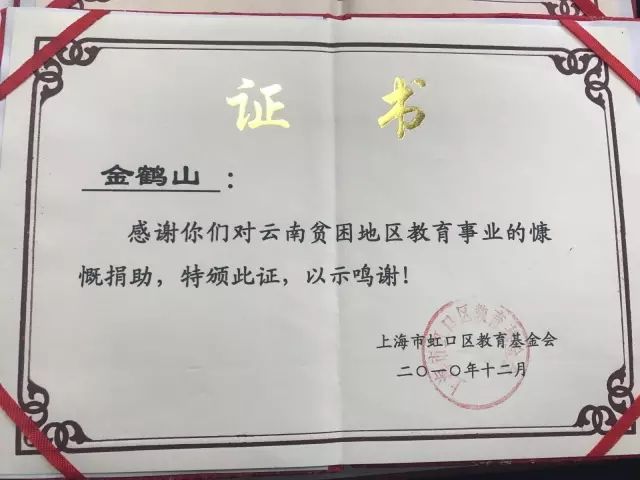 证 书
金鹤山：
感谢你们对云南贫困地区教育事业的慷
慨捐助，特颁此证，以示鸣谢！
上海市虹口区教育基金会
二〇一〇年十二月
上海市虹口区教育基金会